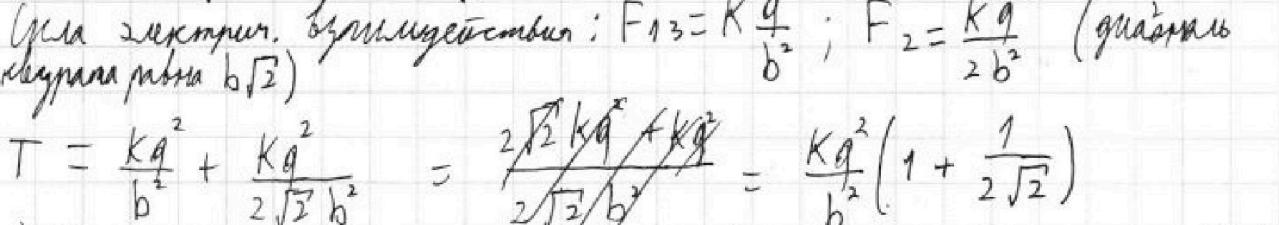 Сила электрич. взаимодействия : F₁₃ = K q/b² ; F₂ = Kq²/2b² (диагональ
квадрата равна b√2)
T = Kq²/b² + Kq²/2√2 b² = 2√2 Kq² + Kq²/2√2 b² = Kq²/b² (1 + 1/2√2)